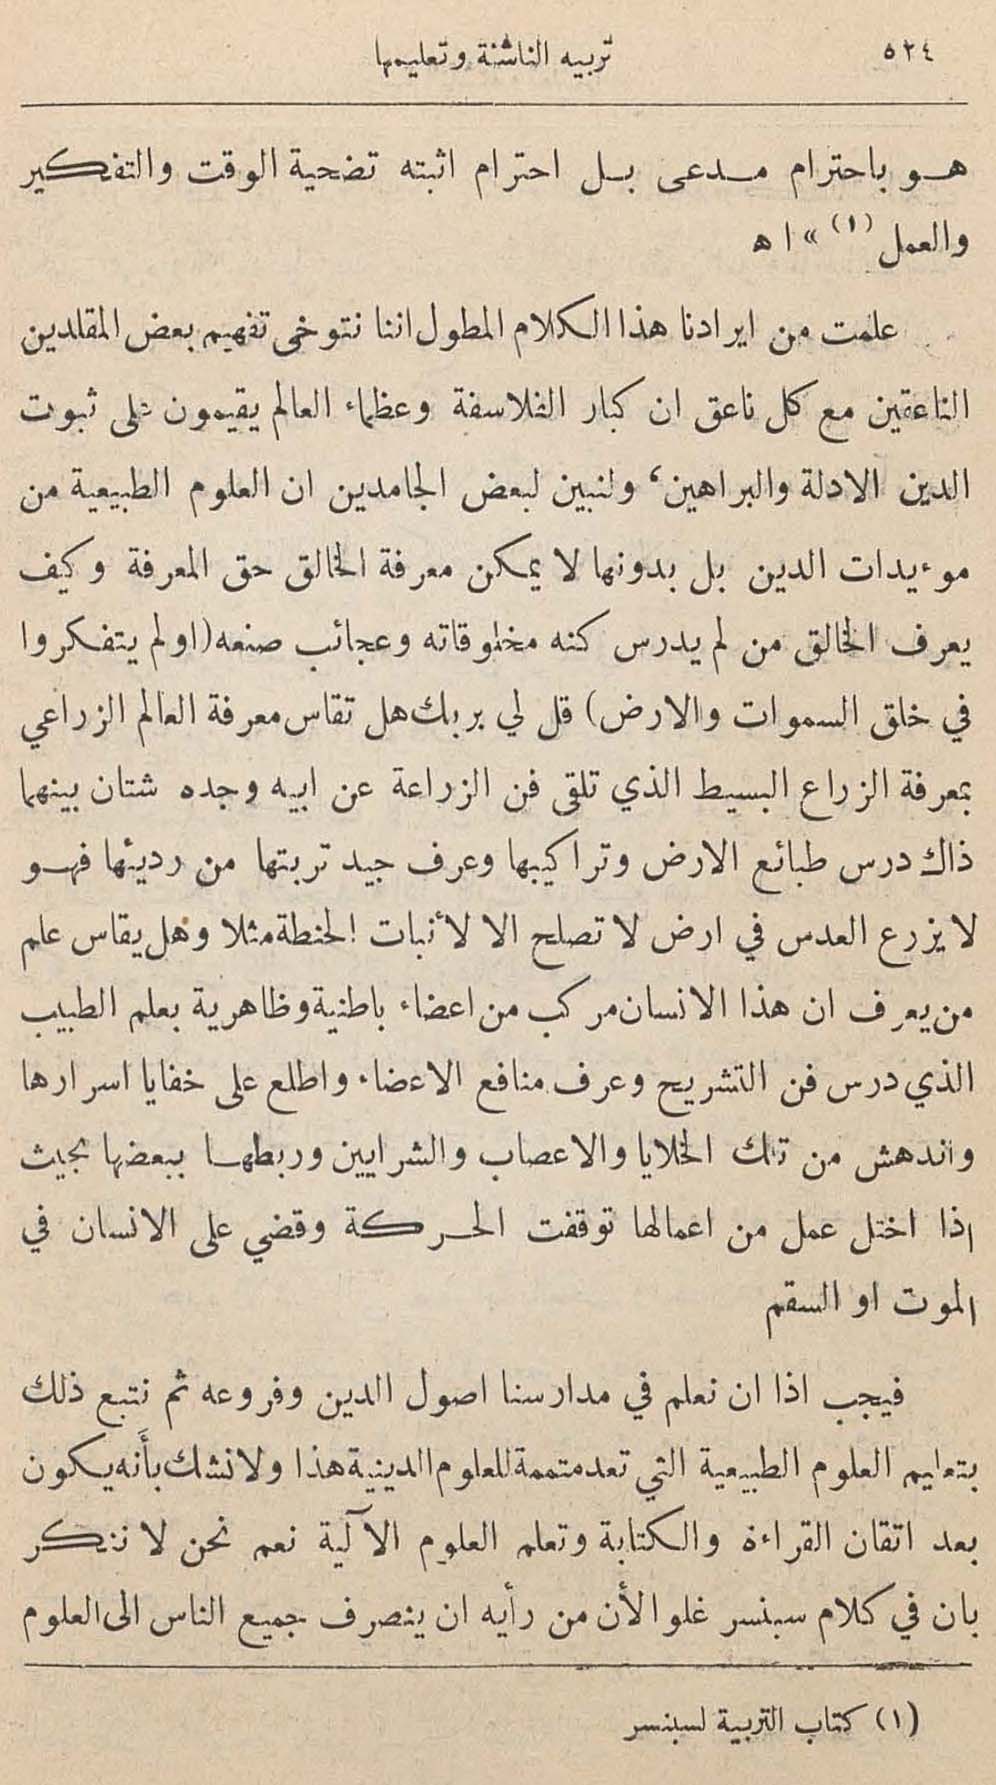 ٥٢٤
تربيه الناشئة وتعليمها
هو باحترام مدعى بل احترام اثبته تضحية الوقت والتفكير
والعمل (١) » ا ه
علمت من ايرادنا هذا الكلام المطول اننا نتوخى تفهيم بعض المقلدين
الناعقين مع كل ناعق ان كبار الفلاسفة وعظماء العالم يقيمون على ثبوت
الدين الادلة والبراهين، ولنبين لبعض الجامدين ان العلوم الطبيعية من
موءيدات الدين بل بدونها لا يمكن معرفة الخالق حق المعرفة وكيف
يعرف الخالق من لم يدرس كنه مخلوقاته وعجائب صنعه (اولم يتفكروا
في خلق السموات والارض) قل لي بربك هل تقاس معرفة العالم الزراعي
بمعرفة الزراع البسيط الذي تلقى فن الزراعة عن ابيه وجده شتان بينهما
ذاك درس طبائع الارض وتراكيبها وعرف جيد تربتها من رديئها فهو
لا يزرع العدس في ارض لا تصلح الا لأنبات الحنطة مثلا وهل يقاس علم
من يعرف ان هذا الانسان مركب من اعضاء باطنية وظاهرية بعلم الطبيب
الذي درس فن التشريح وعرف منافع الاعضاء واطلع على خفايا اسرارها
واندهش من تلك الخلايا والاعصاب والشرايين وربطها ببعضها بحيث
اذا اختل عمل من اعمالها توقفت الحركة وقضي على الانسان في
الموت او السقم
فيجب اذا ان نعلم في مدارسنا اصول الدين وفروعه ثم نتبع ذلك
بتعليم العلوم الطبيعية التي تعد متممة للعلوم الدينية هذا ولا نشك بأنه يكون
بعد اتقان القراءة والكتابة وتعلم العلوم الآلية نعم نحن لا ننكر
بان في كلام سبنسر غلوا لأن من رأيه ان ينصرف جميع الناس الى العلوم
(١) كتاب التربية لسبنسر